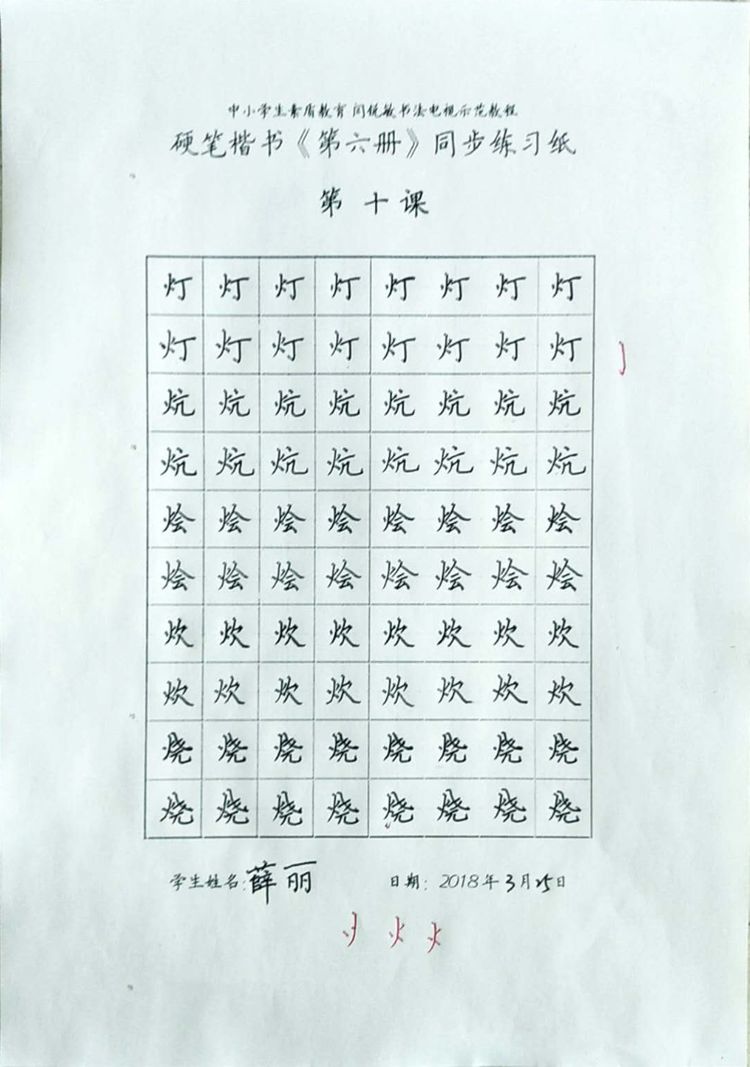 中小学生素质教育 闫锐敏书法电视示范教程
硬笔楷书《第六册》同步练习纸
第十课
灯灯灯灯灯灯灯灯
灯灯灯灯灯灯灯灯
炕炕炕炕炕炕炕炕
炕炕炕炕炕炕炕炕
烩烩烩烩烩烩烩烩
烩烩烩烩烩烩烩烩
炊炊炊炊炊炊炊炊
炊炊炊炊炊炊炊炊
烧烧烧烧烧烧烧烧
烧烧烧烧烧烧烧烧
学生姓名:薛丽 日期: 2018年3月25日
火火